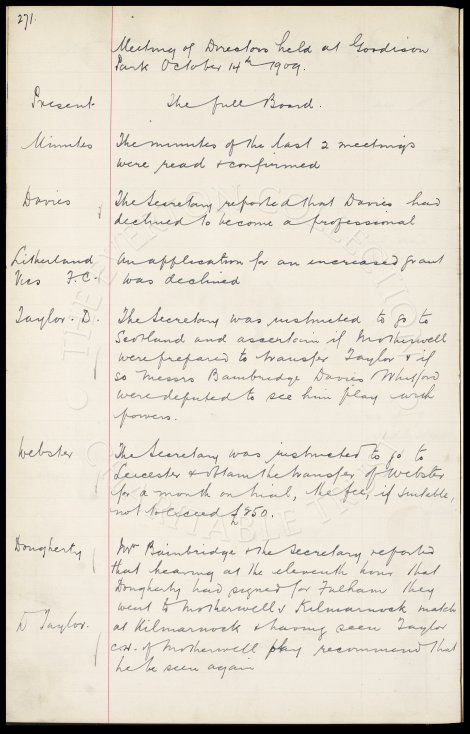 271.
Meeting of Directors held at Goodison
Park October 14th 1909.
Present The full Board.
Minutes The minutes of the last 2 meetings
were read & confirmed
Davies The Secretary reported that Davies had
declined to become a professional
Litherland An application for an increased grant
Vics F.C. was declined
Taylor. D. The Secretary was instructed to go to
Scotland and ascertain if Motherwell
were prepared to transfer Taylor & if
so Messrs Bainbridge Davies Whitford
were deputed to see him play with
powers.
Webster The Secretary was instructed to go to
Leicester & obtain the transfer of Webster
for a month on trial, the fee, if suitable,
not to exceed £250.
Dougherty Mr Bainbridge & the Secretary reported
that hearing at the eleventh hour that
Dougherty had signed for Fulham they
went to Motherwell v Kilmarnock match
D Taylor. at Kilmarnock & having seen Taylor
of Motherwell play recommend that
he be seen again
THE EVERTON COLLECTION
CHARITABLE TRUST